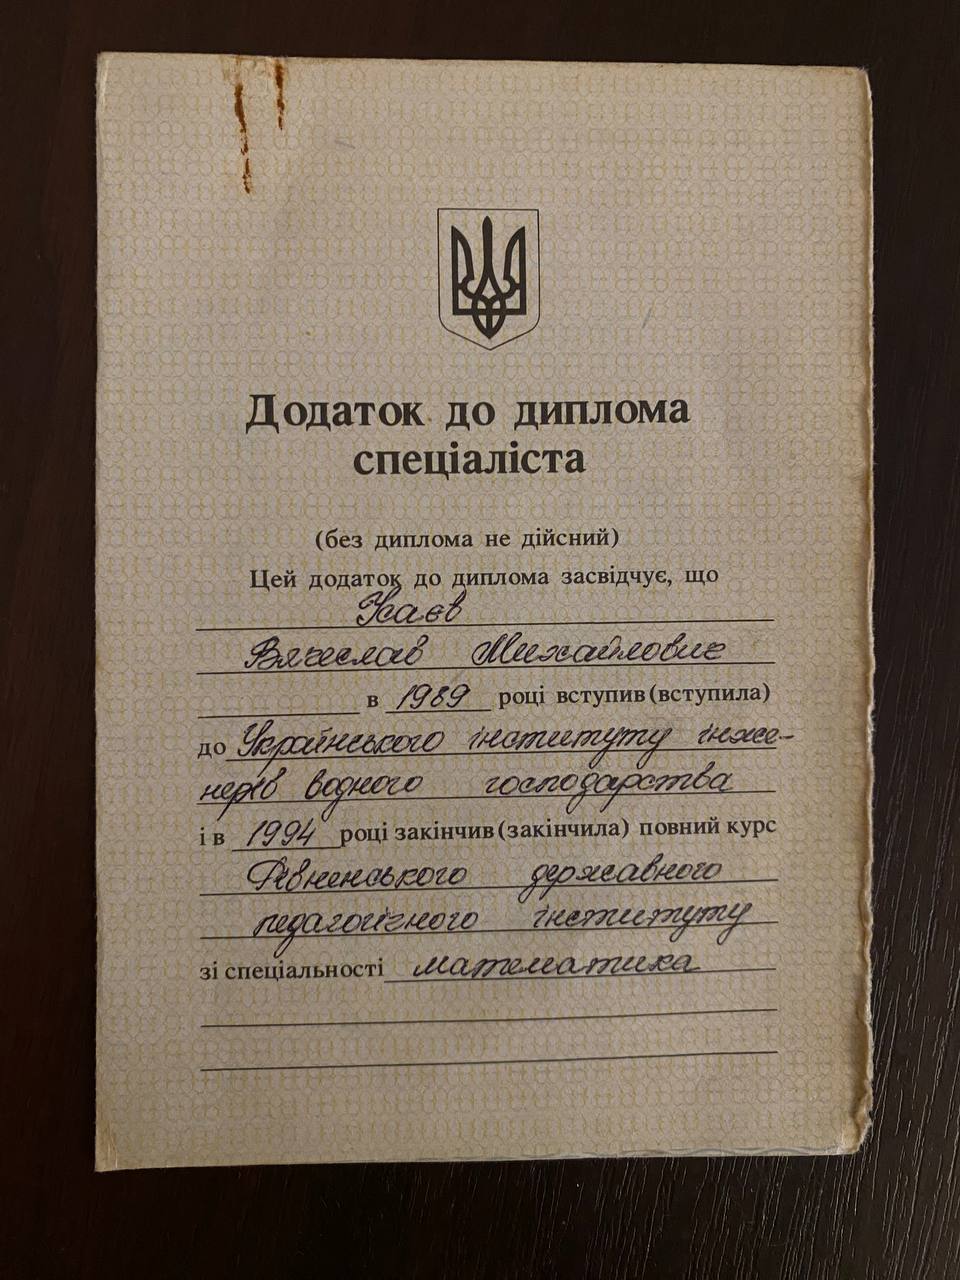 Додаток до диплома
спеціаліста
(без диплома не дійсний)
Цей додаток до диплома засвідчує, що
Вячеслав Михайлович
в 1989 році вступив (вступила)
до Українського інституту інже-
нерів водного господарства
і в 1994 році закінчив (закінчила) повний курс
Рівненського державного
педагогічного інституту
зі спеціальності математика